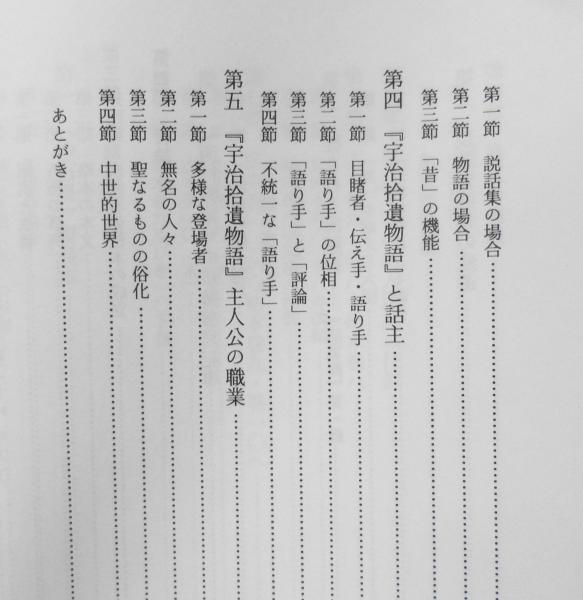 第一節　説話集の場合……………………
第二節　物語の場合……………………
第三節　「昔」の機能……………………
第四　『宇治拾遺物語』と話主……………………
第一節　目睹者・伝え手・語り手……………………
第二節　「語り手」の位相……………………
第三節　「語り手」と「評論」……………………
第四節　不統一な「語り手」……………………
第五　『宇治拾遺物語』主人公の職業……………………
第一節　多様な登場者……………………
第二節　無名の人々……………………
第三節　聖なるものの俗化……………………
第四節　中世的世界……………………
あとがき……………………